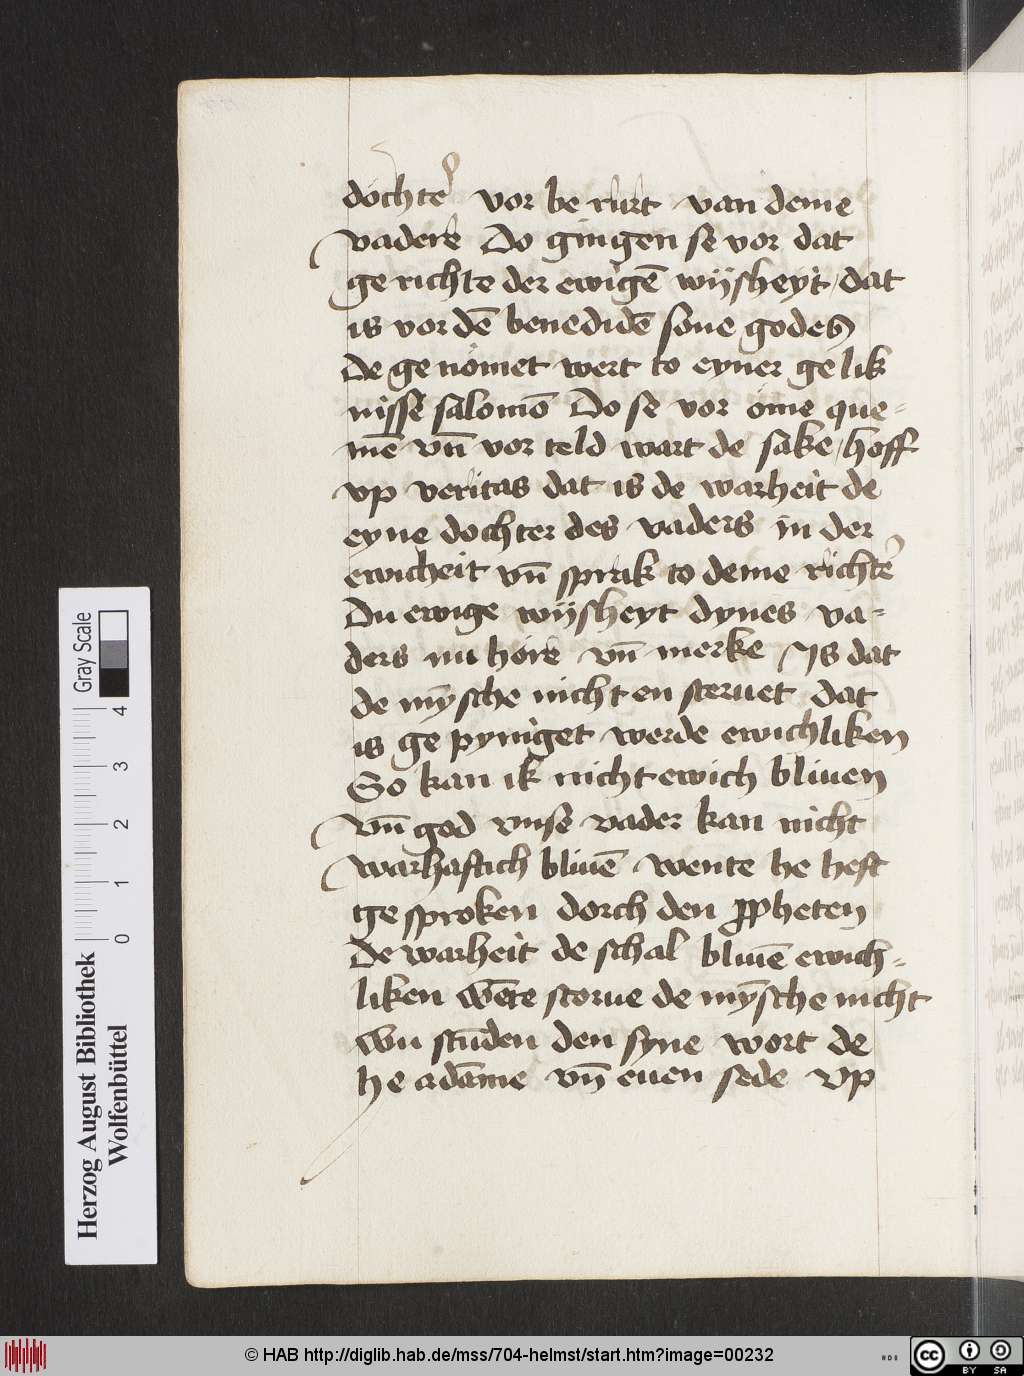 dochter vor be rurt van deme
vadere Do gingen se vor dat
ge richte der ewigē wijsheyt / dat
is vor dē benedidē sone godes
De ge nomet wert to eyner ge lik
nisse salomō Do se vor ome que=
mē vn̄ vor teld wart de sake / hoff
vp veritas dat is de warheit de
eyne dochter des vaders in der
ewicheit vn̄ sprak to deme richter
Du ewige wijsheyt dynes va=
ders nu hore vn̄ merke Js dat
de mȳsche nicht en steruet dat
is ge pyniget werde ewichliken
So kan ik nicht ewich bliuen
vn̄ god vnse vader kan nicht
warhaftich bliuē wente he heft
ge sproken dorch den ꝓpheten
De warheit de schal bliuē ewich=
liken Wēte storue de mȳsche nicht
Wu stūden den syne wort de
he adāme vn̄ euen sede vp
Herzog August Bibliothek
Wolfenbüttel
0 1 2 3 4
Gray Scale
© HAB http://diglib.hab.de/mss/704-helmst/start.htm?image=00232
cc BY SA